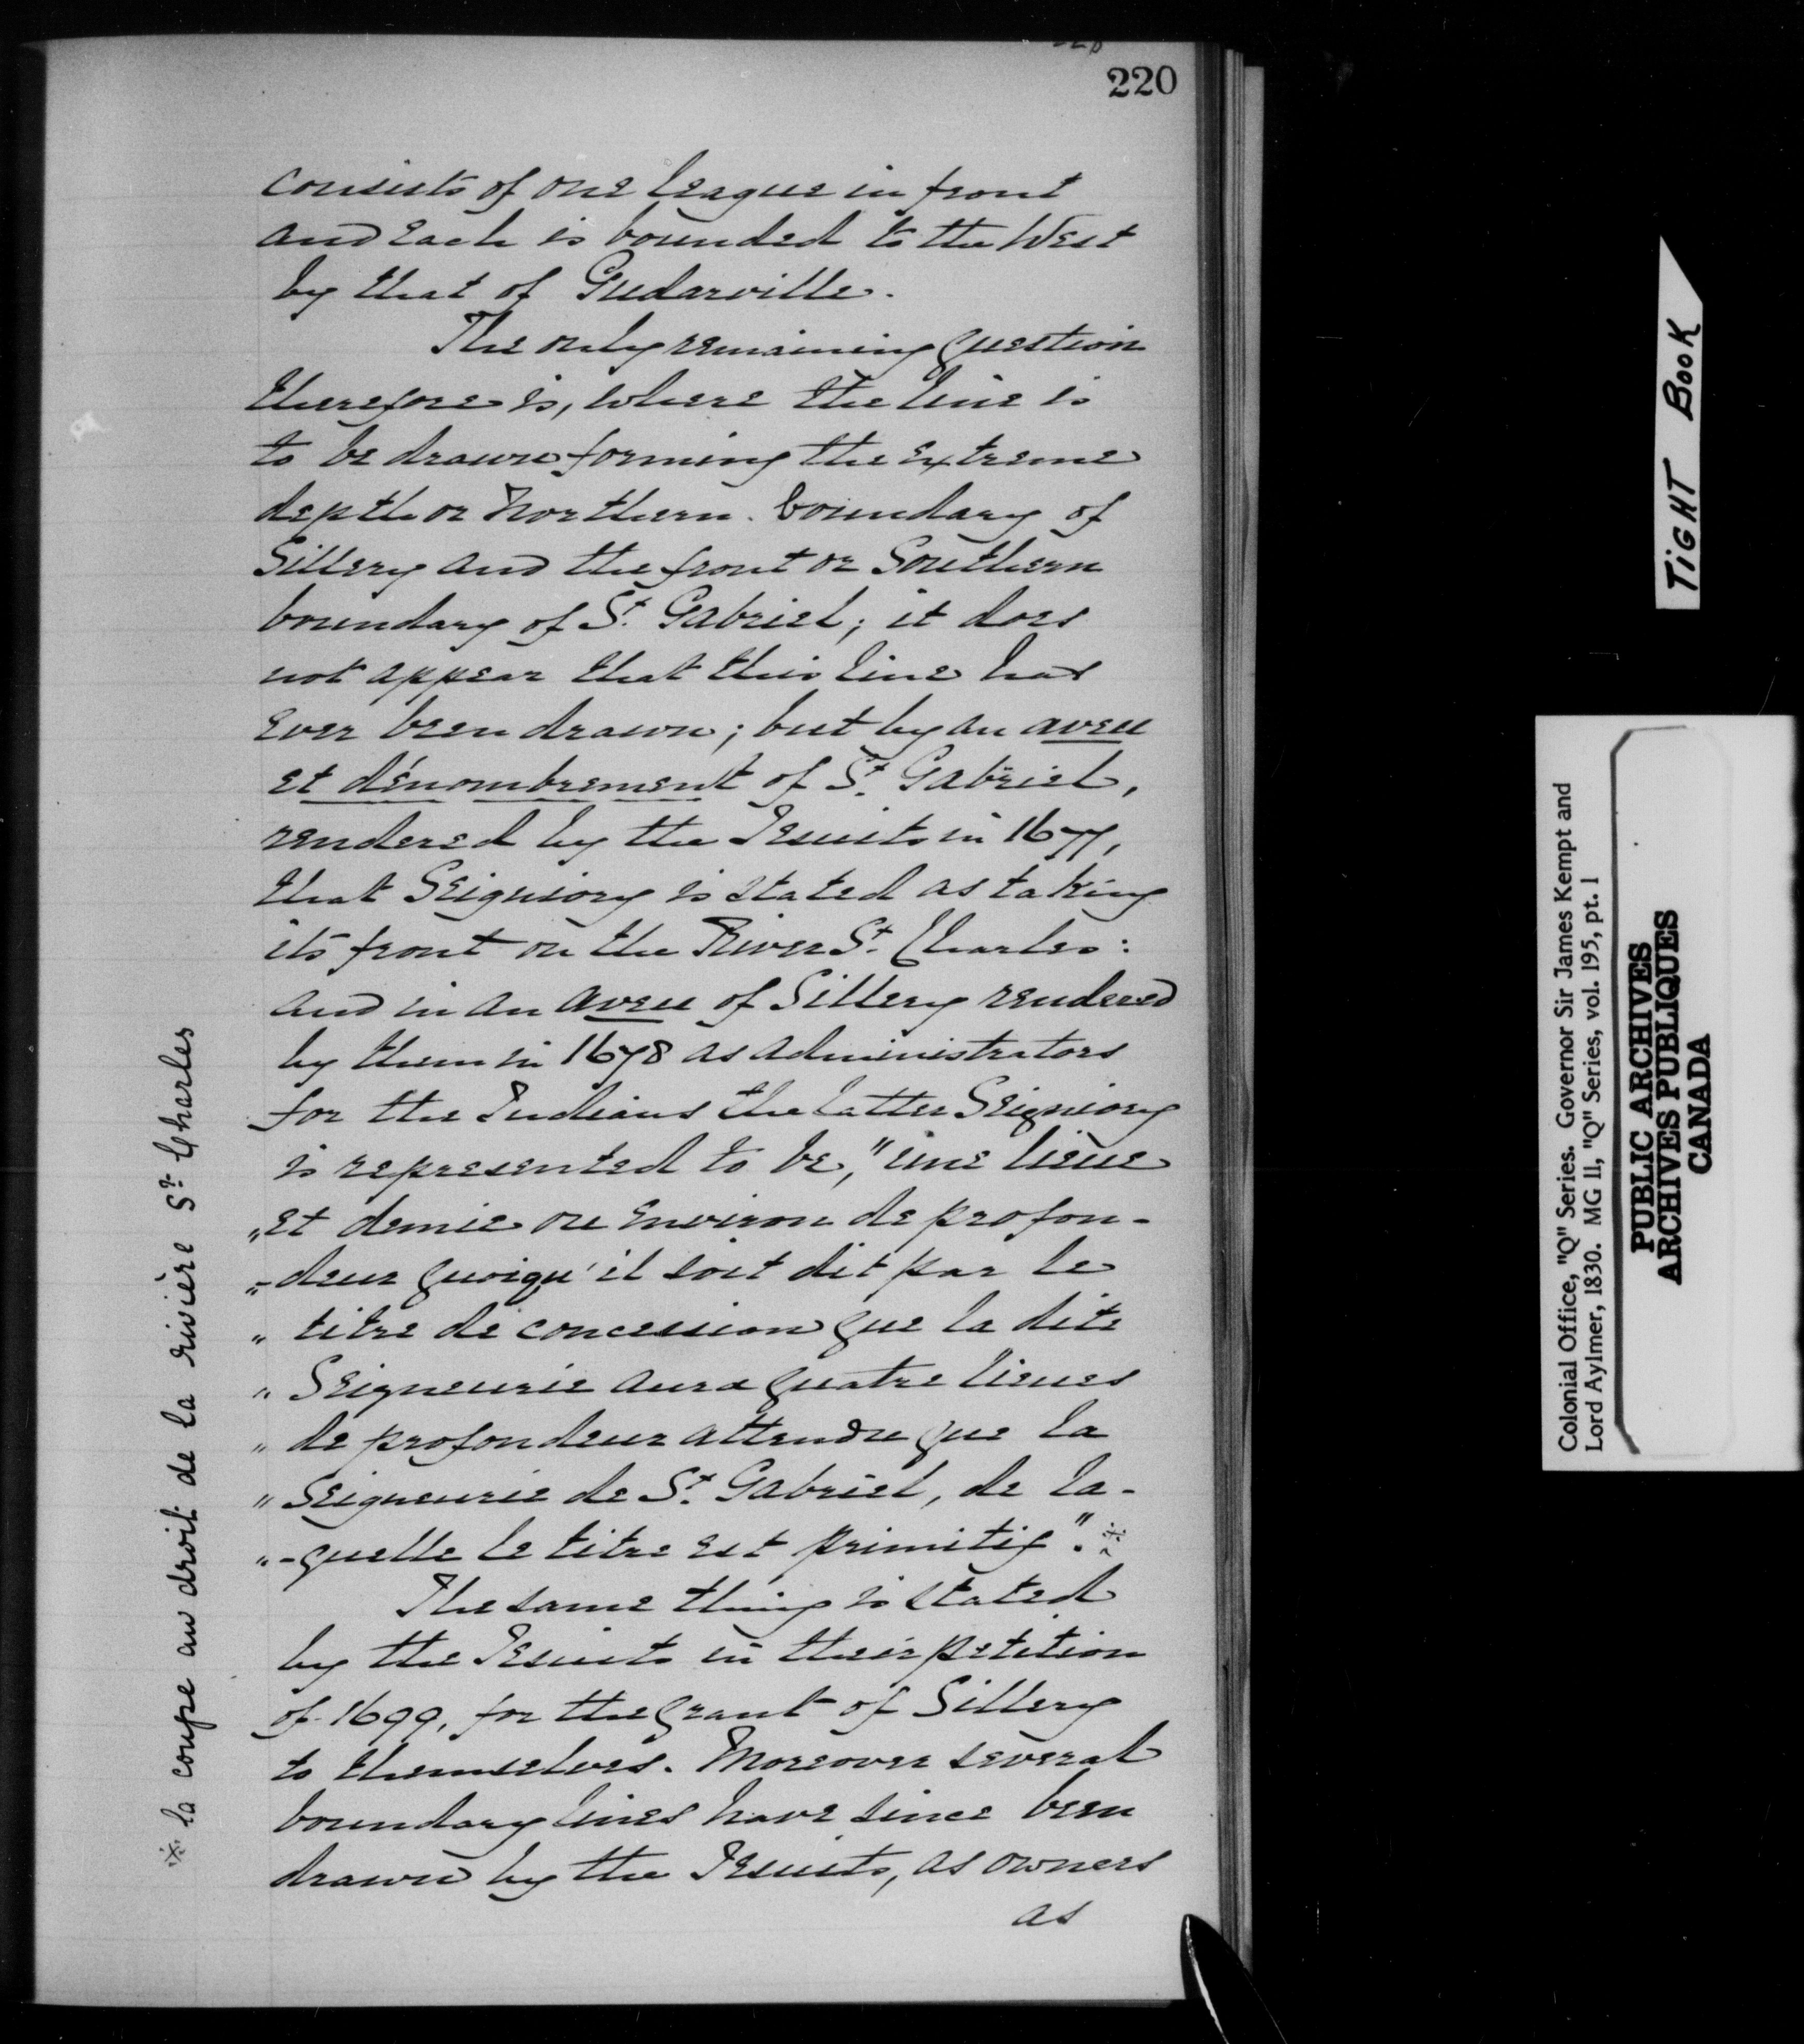 220
consists of one league in front
and Each is bounded to the West
by that of Gudarville.
The only remaining question
therefore is, where the line is
to be drawn forming the extreme
depth or Northern boundary of
Sillery and the front or Southern
boundary of St. Gabriel; it does
not appear that this line has
Ever been drawn; but by an aveu
et dénombrement of St. Gabriel,
rendered by the Jesuits in 1677,
that Seigniory is stated as taking
its front on the River St. Charles:
and in an aveu of Sillery rendered
by them in 1678 as administrators
for the Indians the latter Seigniory
is represented to be, "une lieue
"et demie ou Environ de profon-
"-deur quoiqu'il soit dit par le
" titre de concession que la dite
" Seigneurie aura quatre lieues
" de profondeur attendu que la
" Seigneurie de St. Gabriel, de la-
"-quelle le titre est primitif". ※
The same thing is stated
by the Jesuits in their petition
of 1699, for the grant of Sillery
to themselves. Moreover several
boundary lines have since been
drawn by the Jesuits, as owners
as
※ la coupe au droit de la rivière St. Charles
TIGHT BOOK
Colonial Office, "Q" Series. Governor Sir James Kempt and
Lord Aylmer, 1830. MG 11, "Q" Series, vol. 195, pt. 1
PUBLIC ARCHIVES
ARCHIVES PUBLIQUES
CANADA